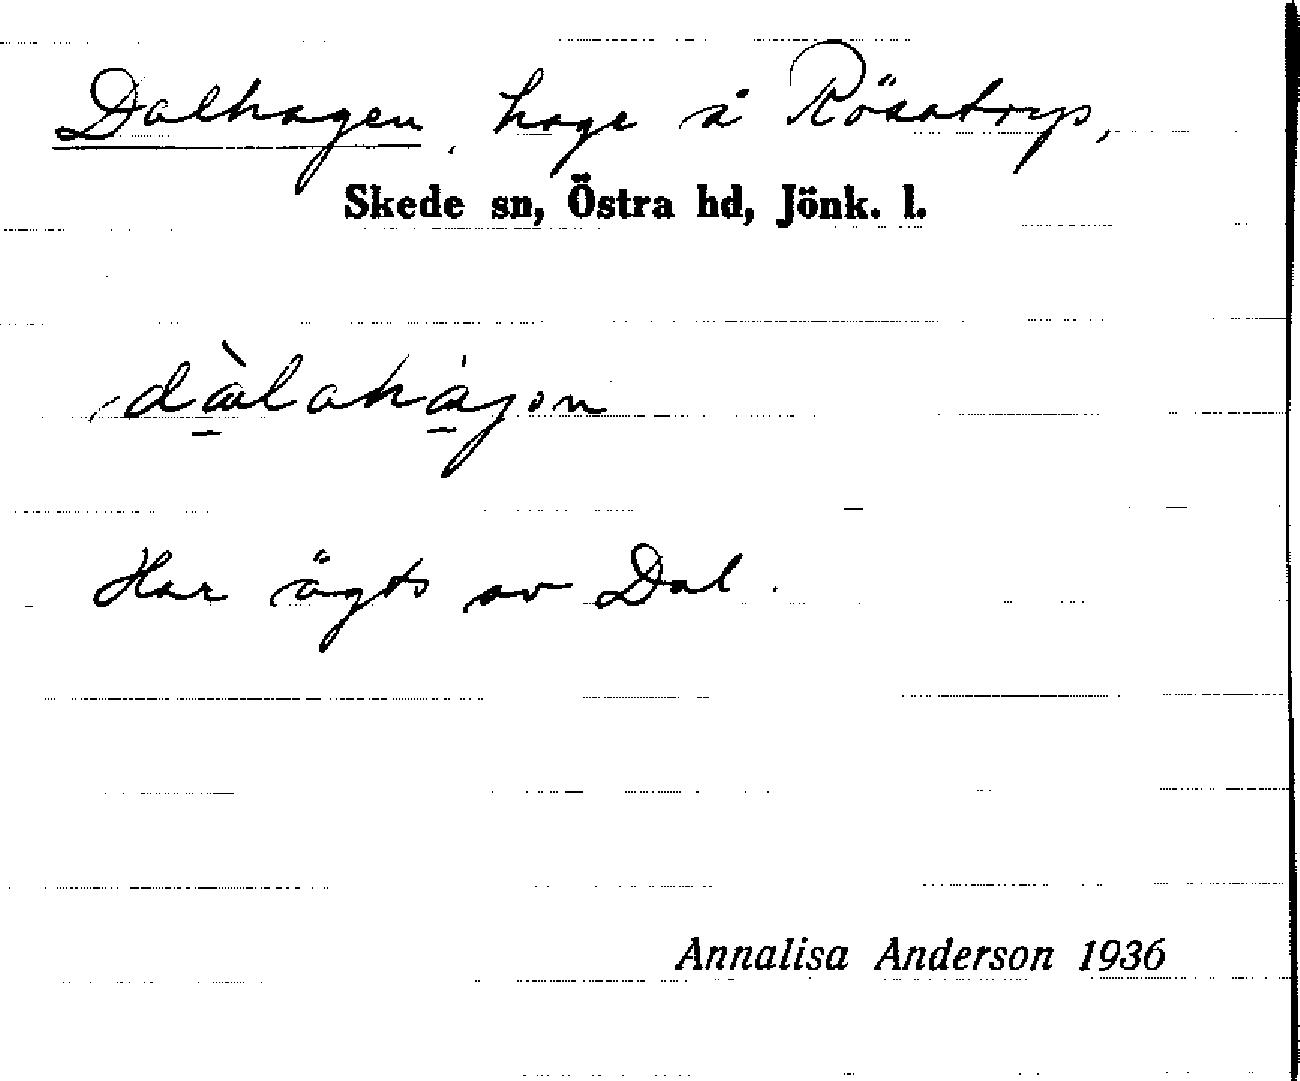 Dalhagen, hage å Rösatorp,
Skede sn, Östra hd, Jönk. l.
Har ägts av Dal.
Annalisa Anderson 1936